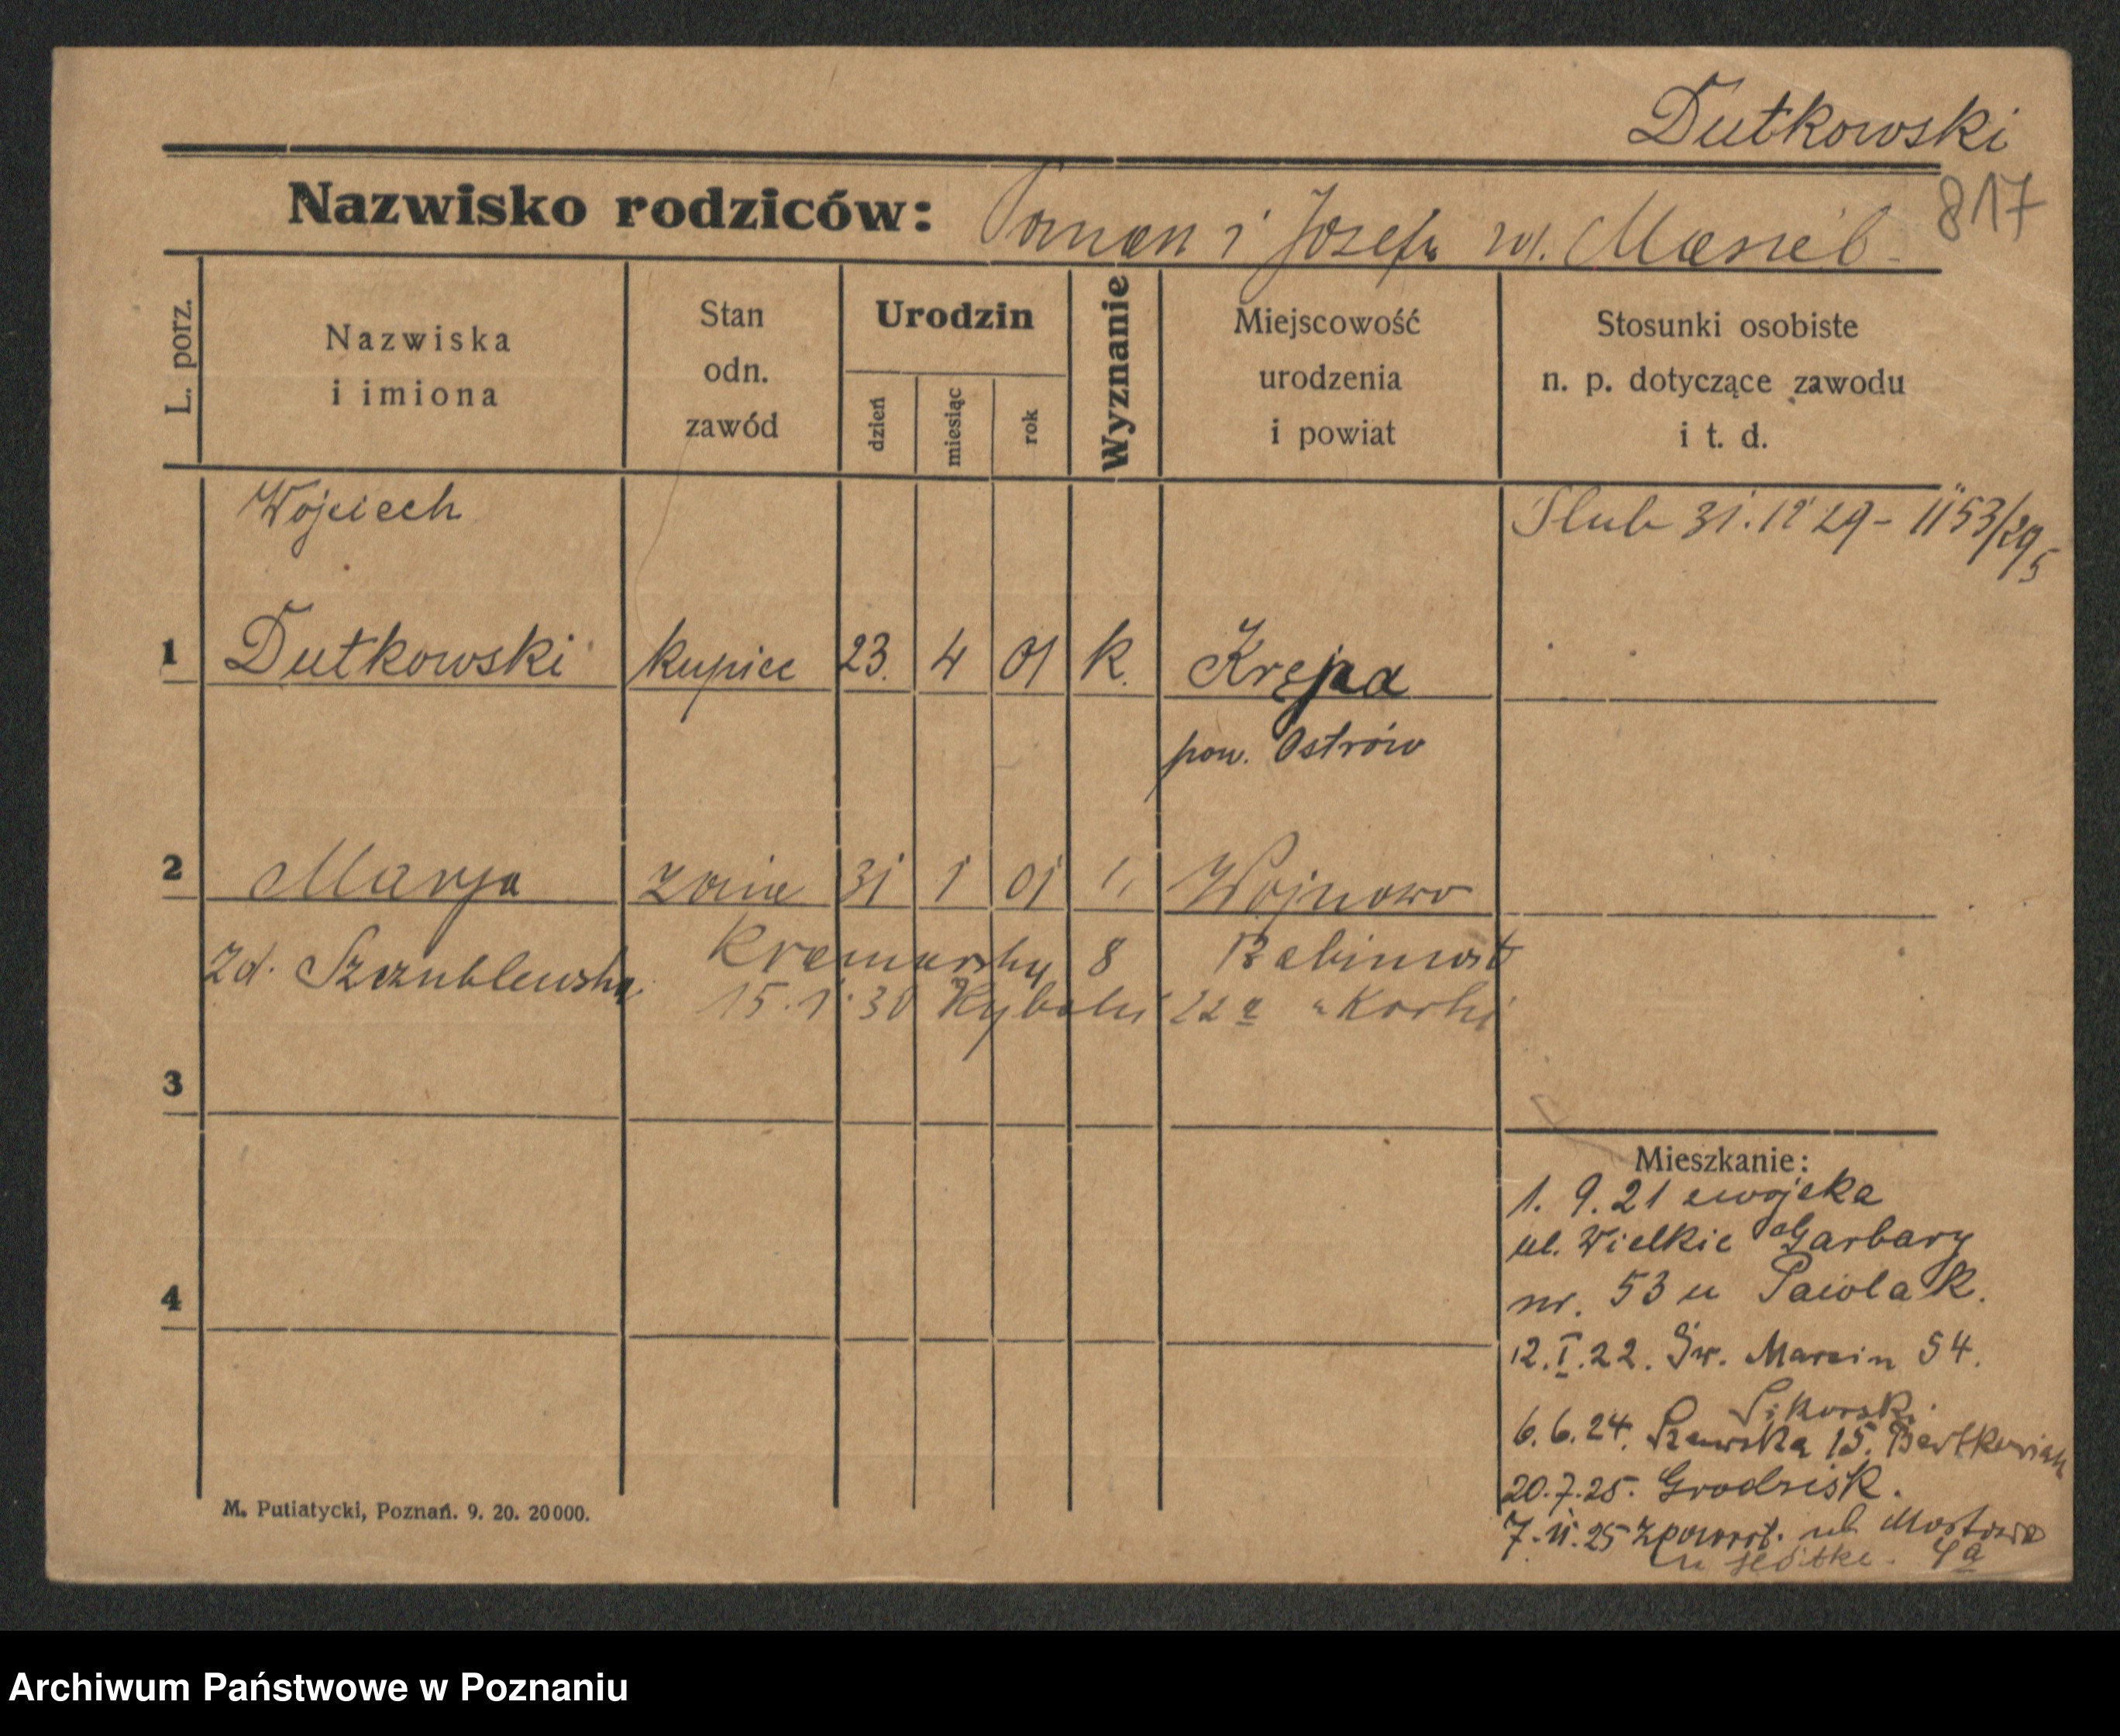 Dutkowski
817
Nazwisko rodziców: Roman i Józefa
L. porz.
Nazwiska
i imiona
Stan
odn.
zawód
Urodzin
dzień
miesiąc
rok
Wyznanie
Miejscowość
urodzenia
i powiat
Stosunki osobiste
n. p. dotyczące zawodu
i t. d.
Wojciech
Ślub 31.12 29 - 1153/29
1 Dutkowski kupiec 23. 4 01 k. Krępa
pow. Ostrów
2 Marja żona 31 1 01 " Wojnowo
zd. Kramarska 8 Babimost
15.1.30 22a
3
Mieszkanie:
1. 9. 21
ul. Wielkie Garbary
nr. 53 u Pawlak.
4
12.I.22. Św. Marcin 54.
Sikorski.
6.6.24. Szewska 15. Bartkowiak
20.7.25. Grodzisk.
7.11.25 zpowrot. ul. Mostowa
4a
M. Putiatycki, Poznań. 9. 20. 20000.
Archiwum Państwowe w Poznaniu